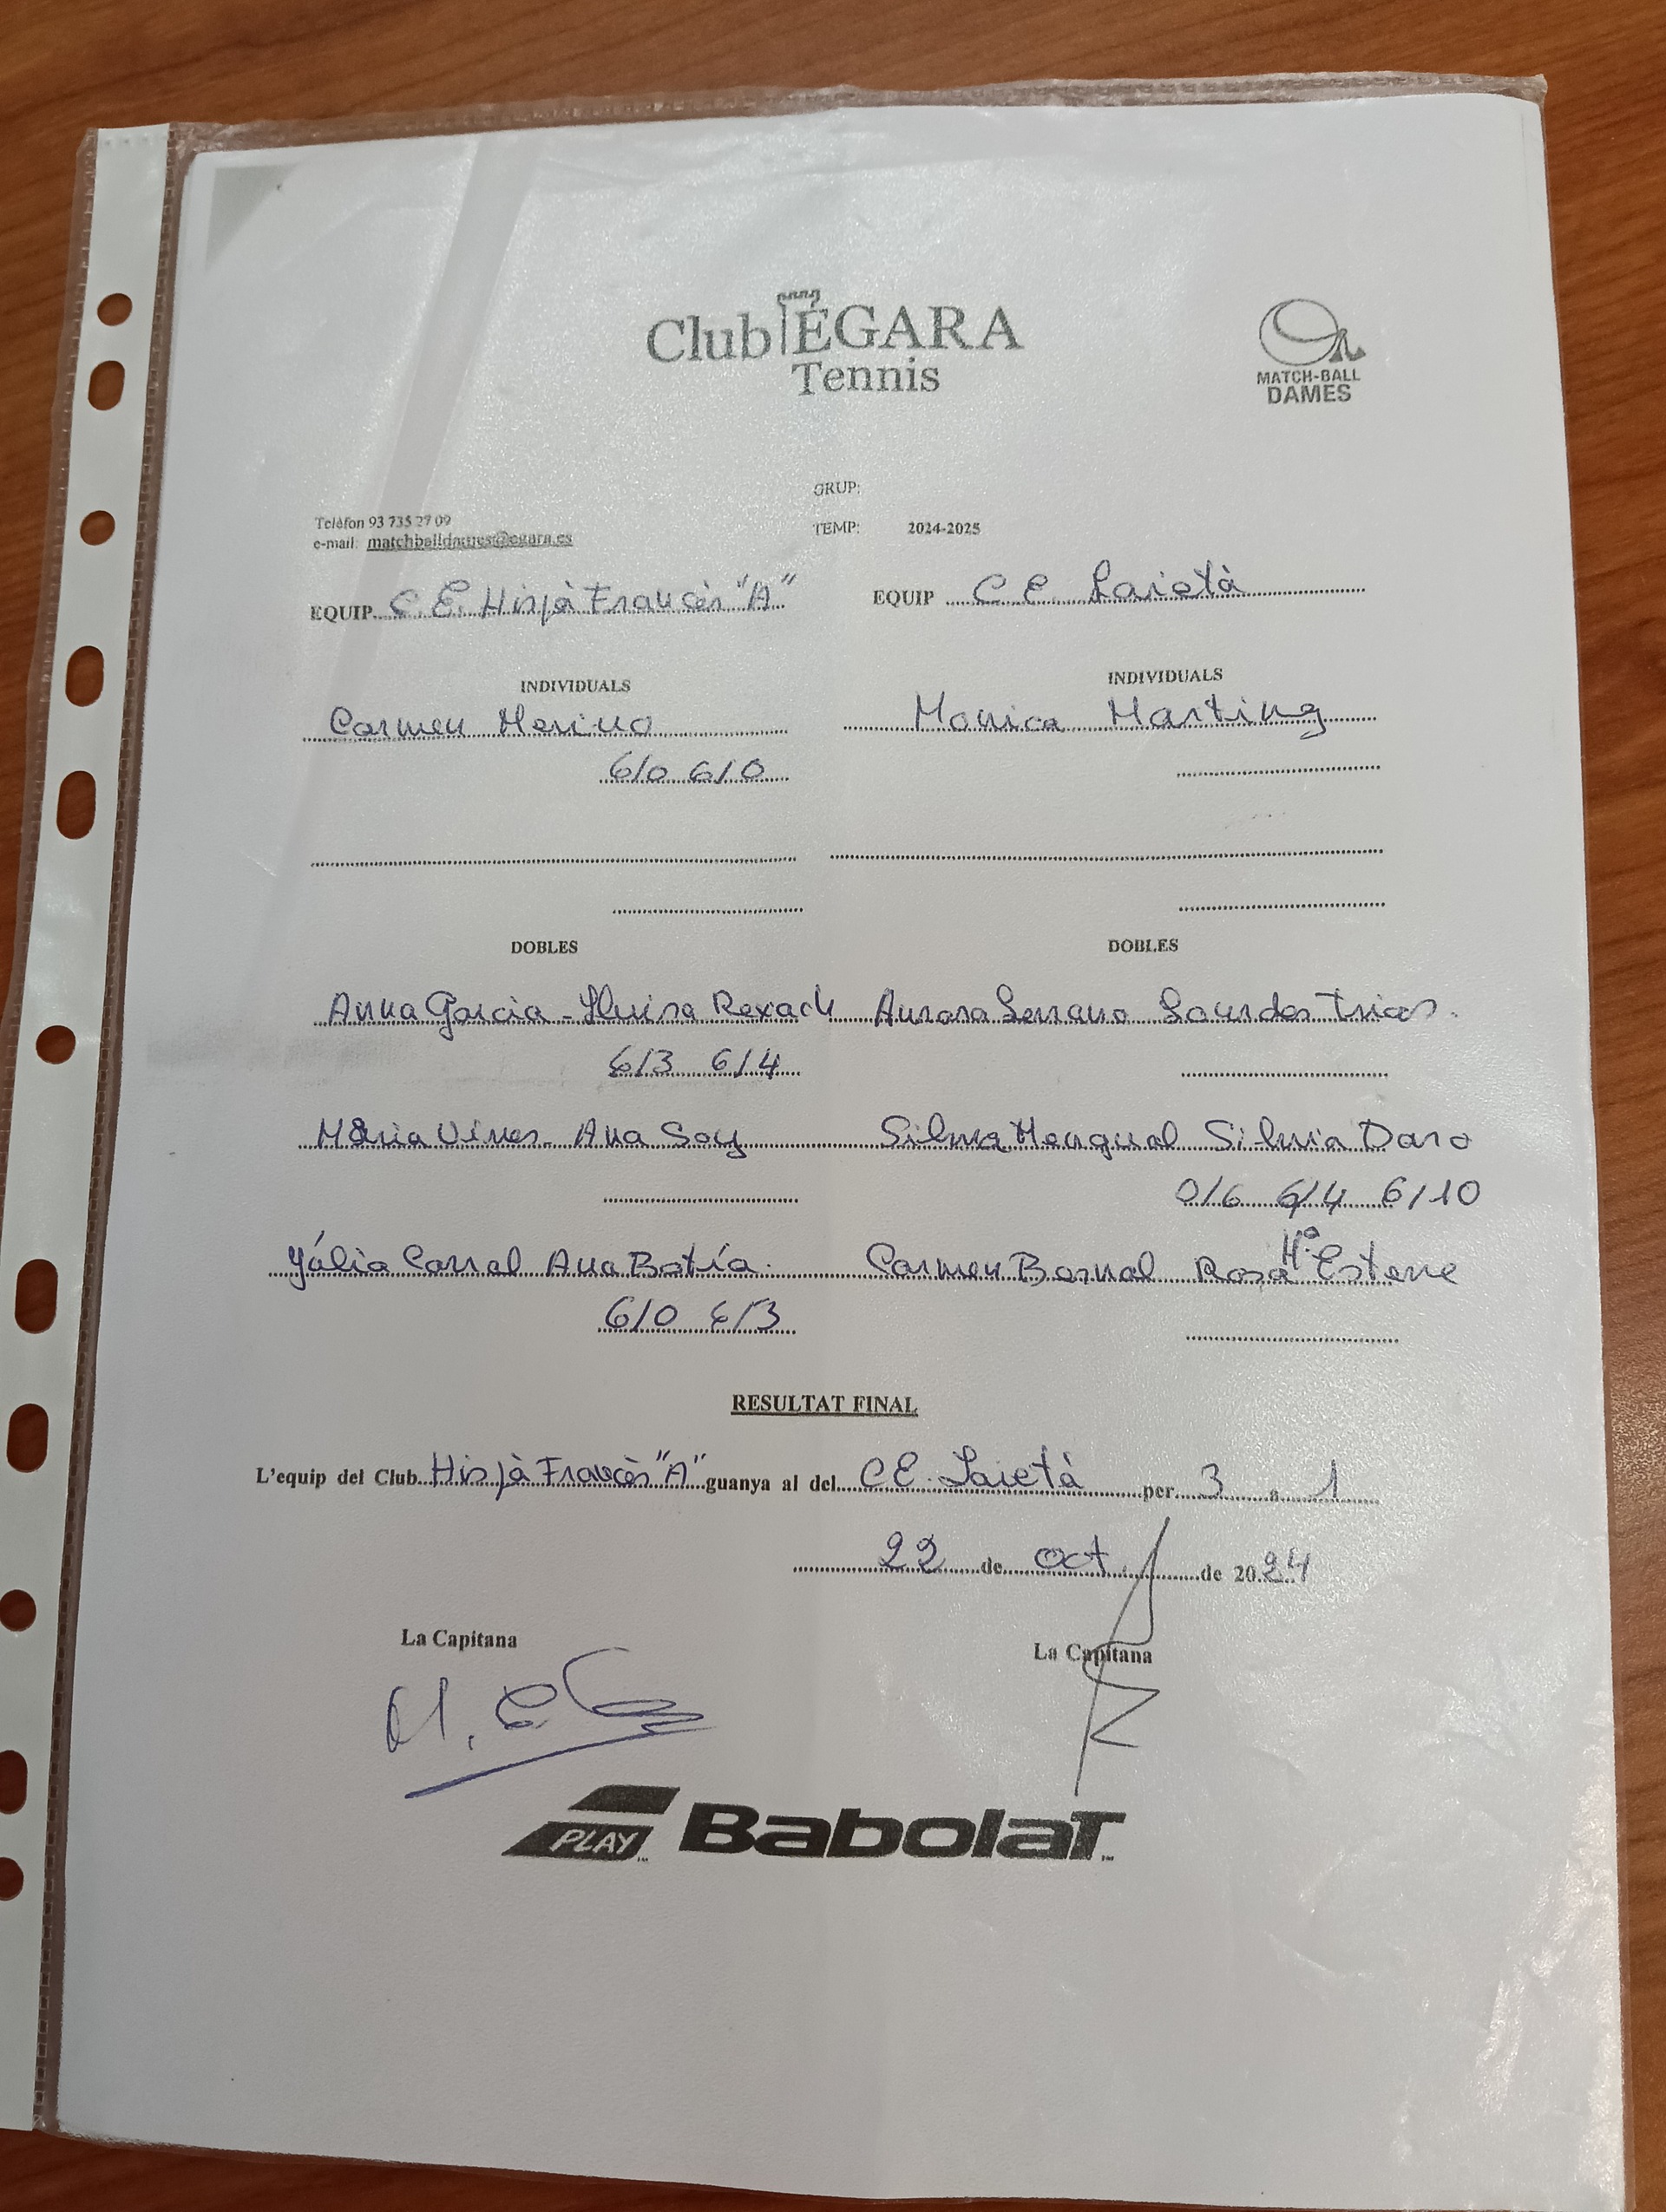 Club ÉGARA
Tennis
MATCH-BALL
DAMES
GRUP:
Telèfon 93 735 27 09
TEMP: 2024-2025
e-mail: matchballdames@egara.es
EQUIP C.E. Hispà Francès "A" EQUIP C.E. Laietà
INDIVIDUALS INDIVIDUALS
Carmen Merino Monica Marting
6/0 6/0
DOBLES DOBLES
Anna Garcia - Lluisa Rexach Aurora Serrano Lourdes Trias.
6/3 6/4
Mària Vives - Ana Soy Silvia Mengual Silvia Daro
0/6 6/4 6/10
Júlia Corral Ana Batía. Carmen Bernal Rosa Mª Esteve
6/0 6/3
RESULTAT FINAL
L'equip del Club Hispà Francès "A" guanya al del C.E. Laietà per 3 a 1
22 de oct. de 2024
La Capitana La Capitana
PLAY BabolaT